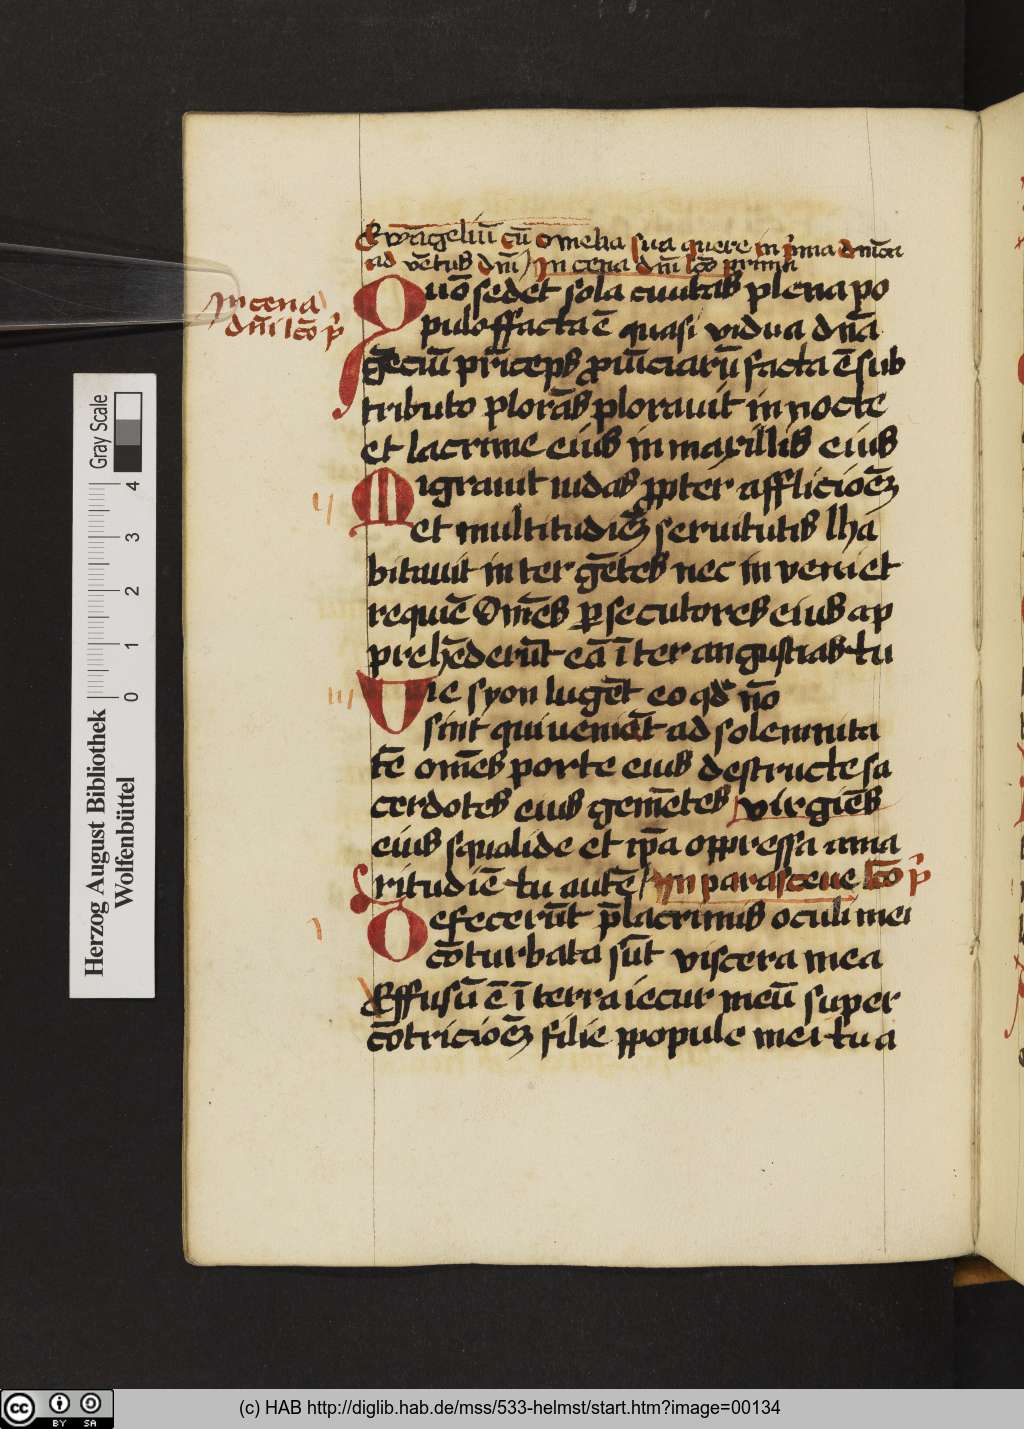 Ewāgeliū cū Omelia sua quere in p̄ma dnīca
ad vētus dnī In cena dnī lc̄o prima
In cena
dn̄i lc̄o p̄
Quō sedet sola ciuitas plena po
pulo ffacta ē quasi vidua dn̄a
gēciū prīceps ꝓuīciarū facta ē sub
tributo plorās plorauit in nocte
et lacrime eius in maxillis eius
ij
Migrauit iudas ꝓpter afflicioēȝ
et multitudiēȝ seruitutis lha
bitauit inter gētes nec in veniet
requiē Omēs ꝑsecutores eius ap
prehēderūt eā ī ter angustias tu
iij
Vie syon lugēt eo qd̄ nō
sint qui ueniēt ad solemnita
tē omēs porte eius destructe sa
cerdotes eius gemētes virgiēs
eius squalide et ip̄a oppressa ama
ritudiē tu autē In parasceue lc̄o p̄
i
Defecerūt p̄ lacrimis oculi mei
cōturbata sūt viscera mea
Effusū ē ī terra iecur meū super
cōtricioēȝ filie ppopule mei tu a
Herzog August Bibliothek
Wolfenbüttel
0 1 2 3 4
Gray Scale
cc BY SA
(c) HAB http://diglib.hab.de/mss/533-helmst/start.htm?image=00134